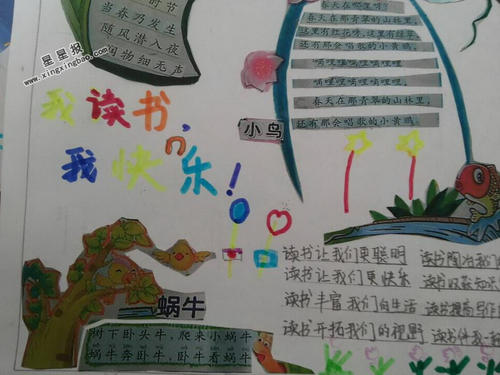 时节
当春乃发生
随风潜入夜
润物细无声
星星报
www.xingxingbao.com
春天在哪里呀?
春天在那青翠的山林里,
这里有红花呀,这里有绿草,
还有那会唱歌的小黄鹂。
嘀哩哩嘀哩嘀哩哩
嘀哩哩嘀哩嘀哩哩
春天在那青翠的山林里,
还有那会唱歌的小黄鹂。
我读书,
我快乐!
小鸟
蜗牛
树下卧头牛,爬来小蜗牛
蜗牛奔卧牛,卧牛看蜗牛
读书让我们更聪明
读书让我们更快乐
读书丰富我们的生活
读书开拓我们的视野
读书陶冶我们
读书收获知识
读书提高写作
读书伴我一